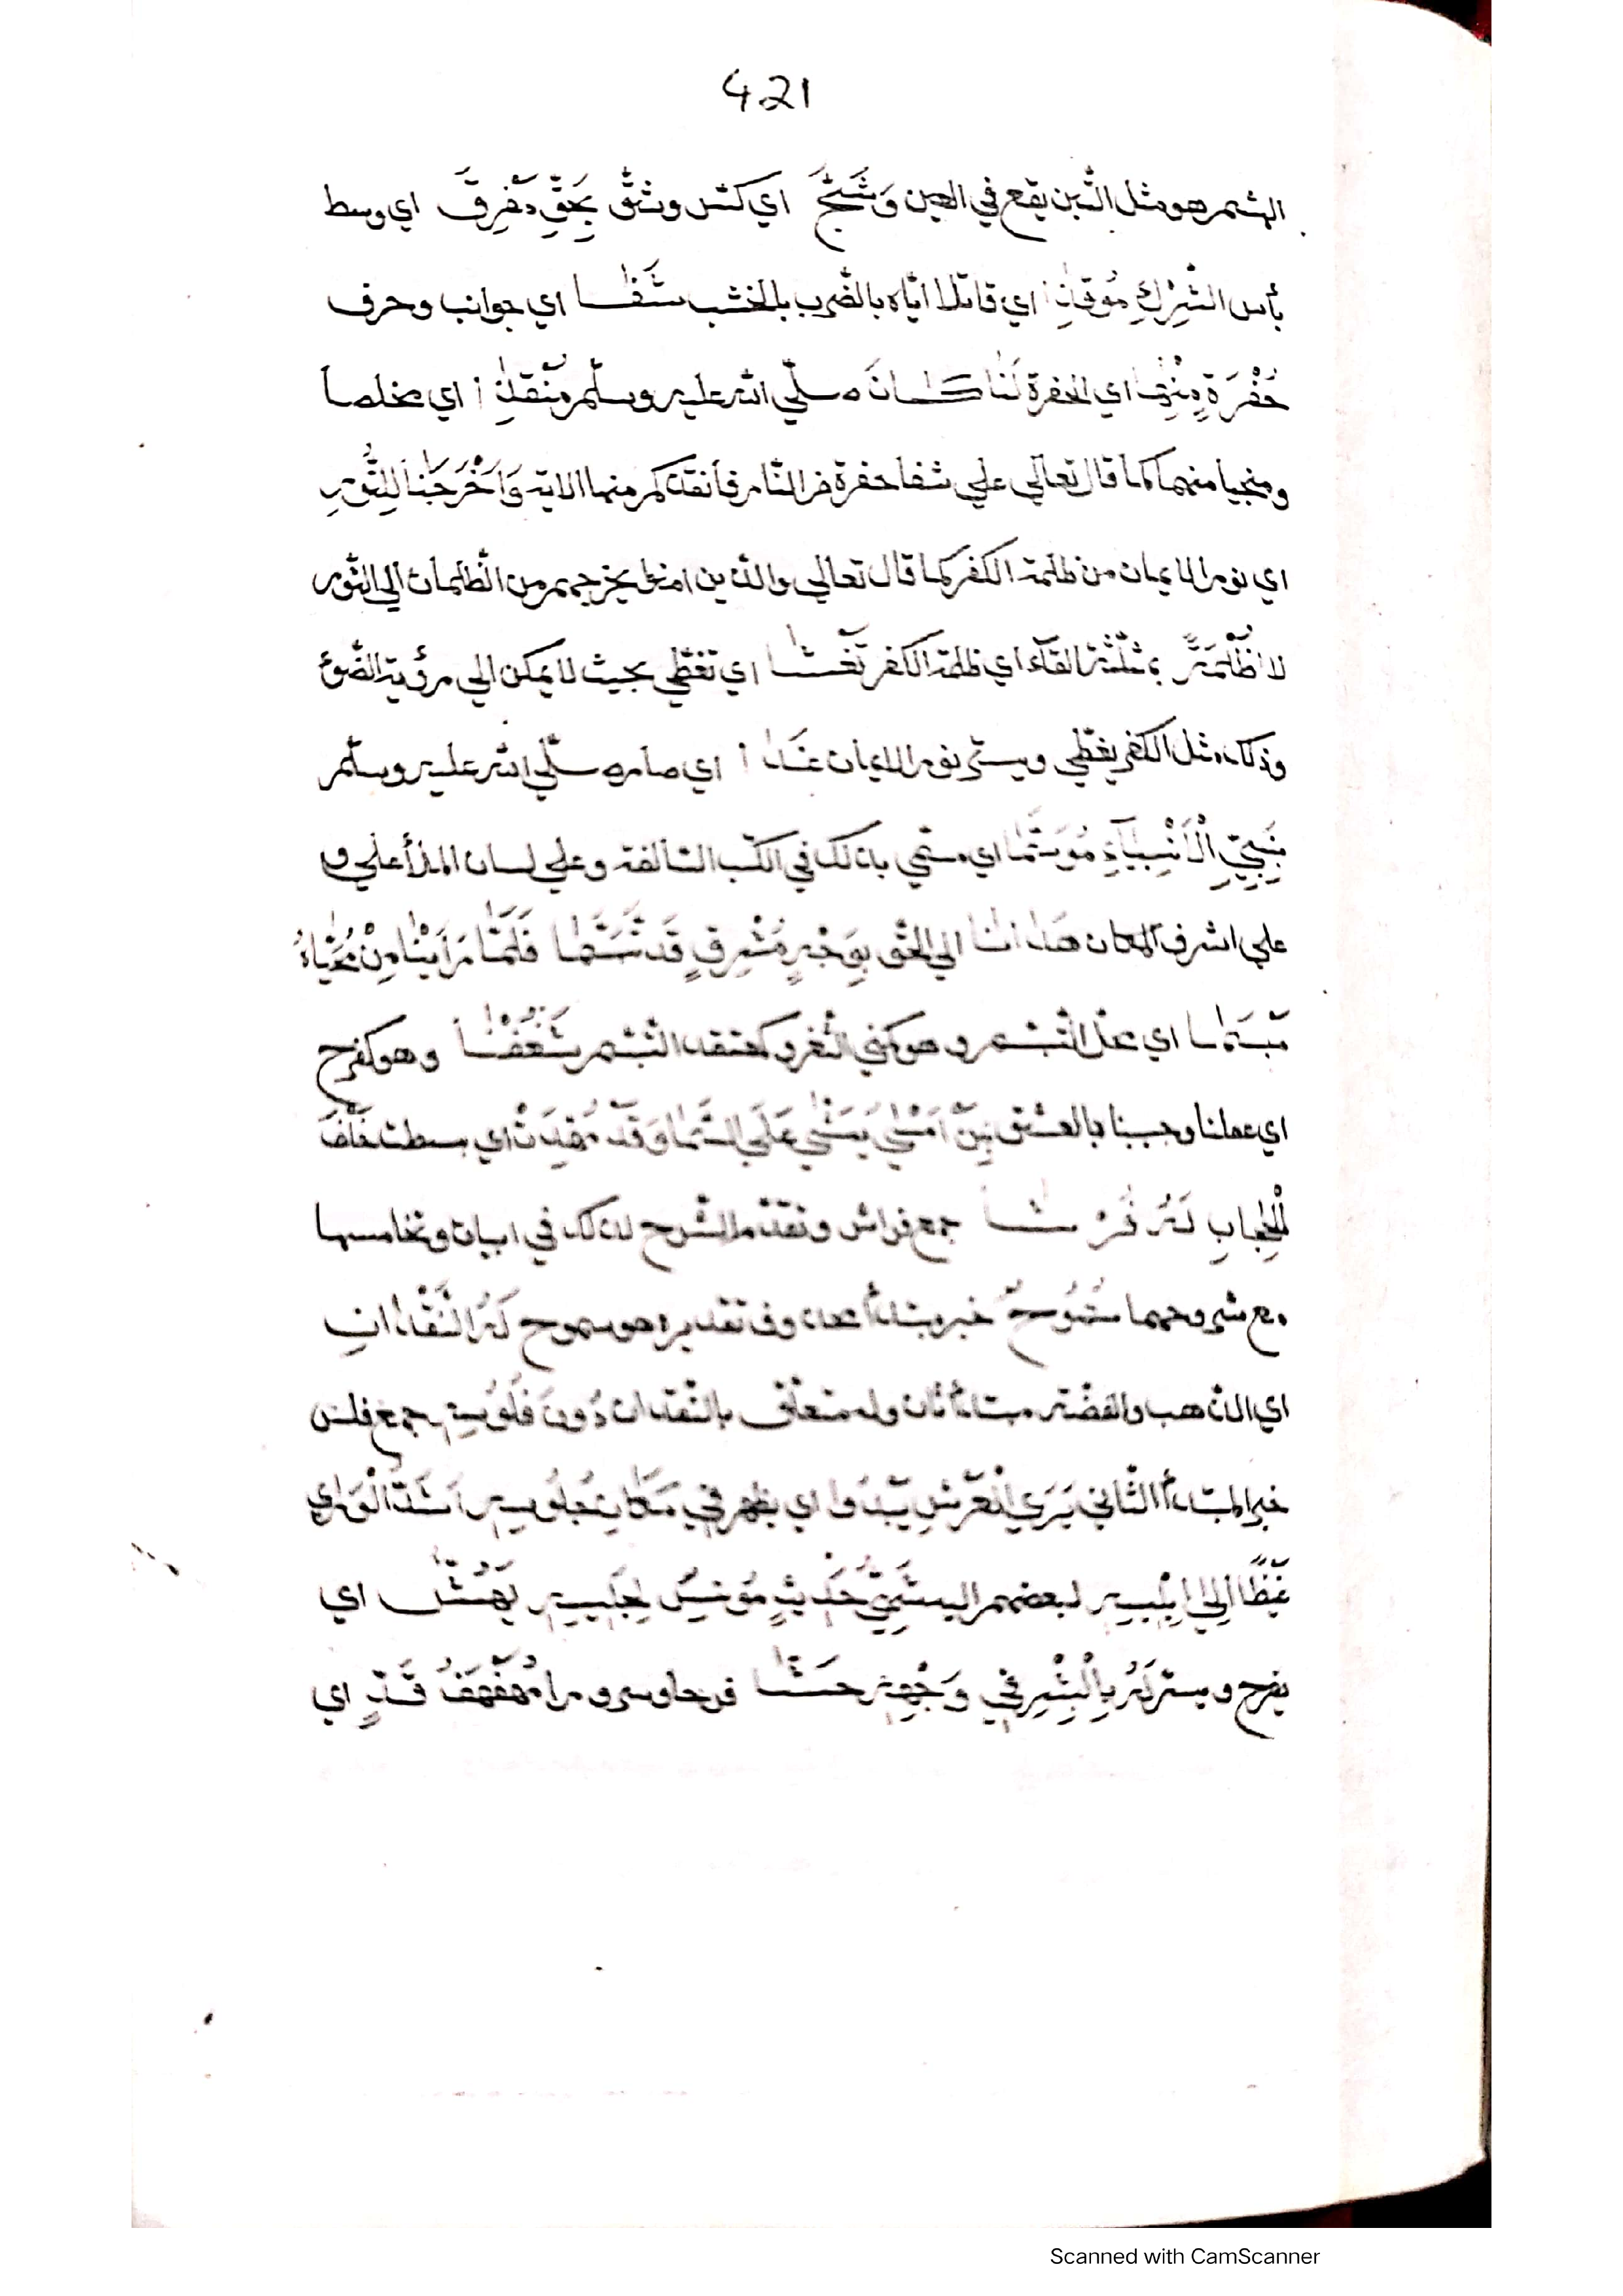 421
الهشيم هو مثل التبن يقع في العين وَشَجَّ اي كسر وشق بِحَقٍّ مَفْرِقَ اي وسط
بأس الشِّرْكِ مُوقِذًا اي قاتلا اياه بالضرب بالخشب شَفَا اي جوانب وحرف
حُفْرَةٍ مِنْهَا اي الحفرة لَنَا كَانَ صلّي الله عليه وسلّم مُنْقِذًا اي مخلصا
ومنجيا منها كما قال تعالي علي شفا حفرة من النار فأنقذكم منها الاية وَاَخْرَجَنَا لِلنُّورِ
اي نور الايمان من ظلمة الكفر كما قال تعالي والذين امنوا يخرجهم من الظلمات الي النور
لا ظُلْمَةٌ بمثلثة القاء اي ظلمة الكفر تَغْشَا اي تغطي بحيث لا يمكن الي رؤية الضوئ
وذلك مثل الكفر يغطي ويستر نور الايمان غَدَا اي صار ه صلّي الله عليه وسلّم
بِنَبِيِّ الْاَنْبِيَآءِ مُوَسَّمًا اي مسمي بذلك في الكتب السالفة وعلي لسان الملأ أعلي و
علي اشرف المكان هدانا الي الحق بِوَجْهٍ مُشْرِقٍ قَد تَبَسَّمَا فَلَمَّا رَاَيْنَا مِنْ مُحَيَّاهُ
مَبْسَمًا اي محل التبسم وهو كني الثغر وكمتقد التبسم شَغَفْنَا وهو كفرح
اي عملنا وحبنا بالعشق بِمَنْ اَمْسَي يَمْشِي عَلَي السَّمَا وَقَدْ مُهِدَتْ اي بسطت خَلْفَ
الْحِجَابِ لَهُ فُرْشَا جمع فراش وتقدم الشرح لذلك في ابيات وتخامسها
مع شروحها سَمُوحٌ خبر مبتدأ محذوف تقديره هو سموح لَهُ النَّقْدَانِ
اي الذهب والفضة مبتدأ ثان وله متعلق بالنقدان دُونَ فُلُوسِهِ جمع فلس
خبر المبتدأ الثاني يَرَي الْعَرْشَ يَبْدُوا اي يظهر في مَكَانِ جُلُوسِهِ اَشَدُّ الْوَرَي
غَيْظًا اِلَي اِبْلِيسِهِ لبعضهم اليه شَهِيُّ حَدِيثٍ مُونِسٌ لِجَلِيسِهِ يَهُشُّ اي
يفرح ويسر لَهُ بِالْبِشْرِ فِي وَجْهِهِ حَشَّا فرحا وسرورا مُهَفْهَفُ قَدٍّ اي
Scanned with CamScanner